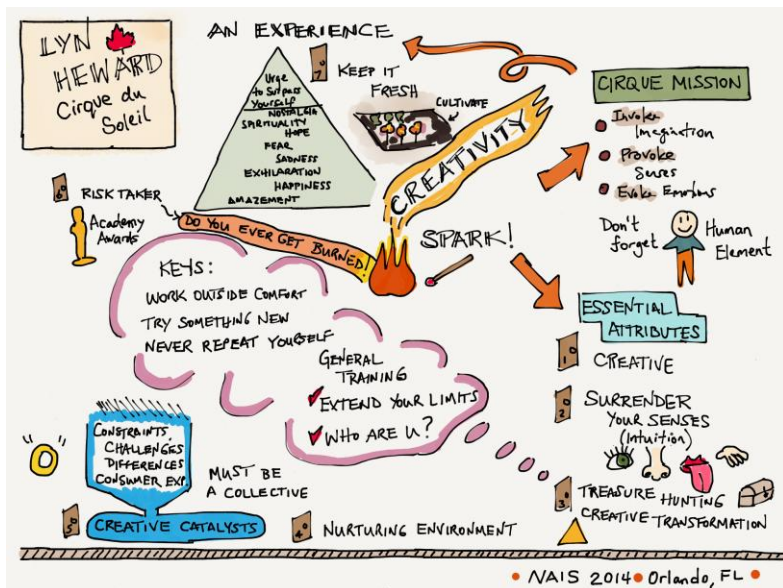 LYN
HEWARD
Cirque du
Soleil
AN EXPERIENCE
Urge
to Surpass
Yourself
NOSTALGIA
SPIRITUALITY
HOPE
FEAR
SADNESS
EXHILARATION
HAPPINESS
AMAZEMENT
7
KEEP IT
FRESH
CULTIVATE
CREATIVITY
CIRQUE MISSION
Invoke
Imagination
Provoke
Senses
Evoke Emotions
Don't
forget
Human
Element
6
RISK TAKER
Academy
Awards
DO YOU EVER GET BURNED!
SPARK!
KEYS:
WORK OUTSIDE COMFORT
TRY SOMETHING NEW
NEVER REPEAT YOURSELF
GENERAL
TRAINING
EXTEND YOUR LIMITS
WHO ARE U?
ESSENTIAL
ATTRIBUTES
1
CREATIVE
2
SURRENDER
YOUR SENSES
(Intuition)
3
TREASURE HUNTING
CREATIVE TRANSFORMATION
CONSTRAINTS,
CHALLENGES
DIFFERENCES
CONSUMER EXP.
MUST BE
A COLLECTIVE
5
CREATIVE CATALYSTS
4
NURTURING ENVIRONMENT
• NAIS 2014 • Orlando, FL •